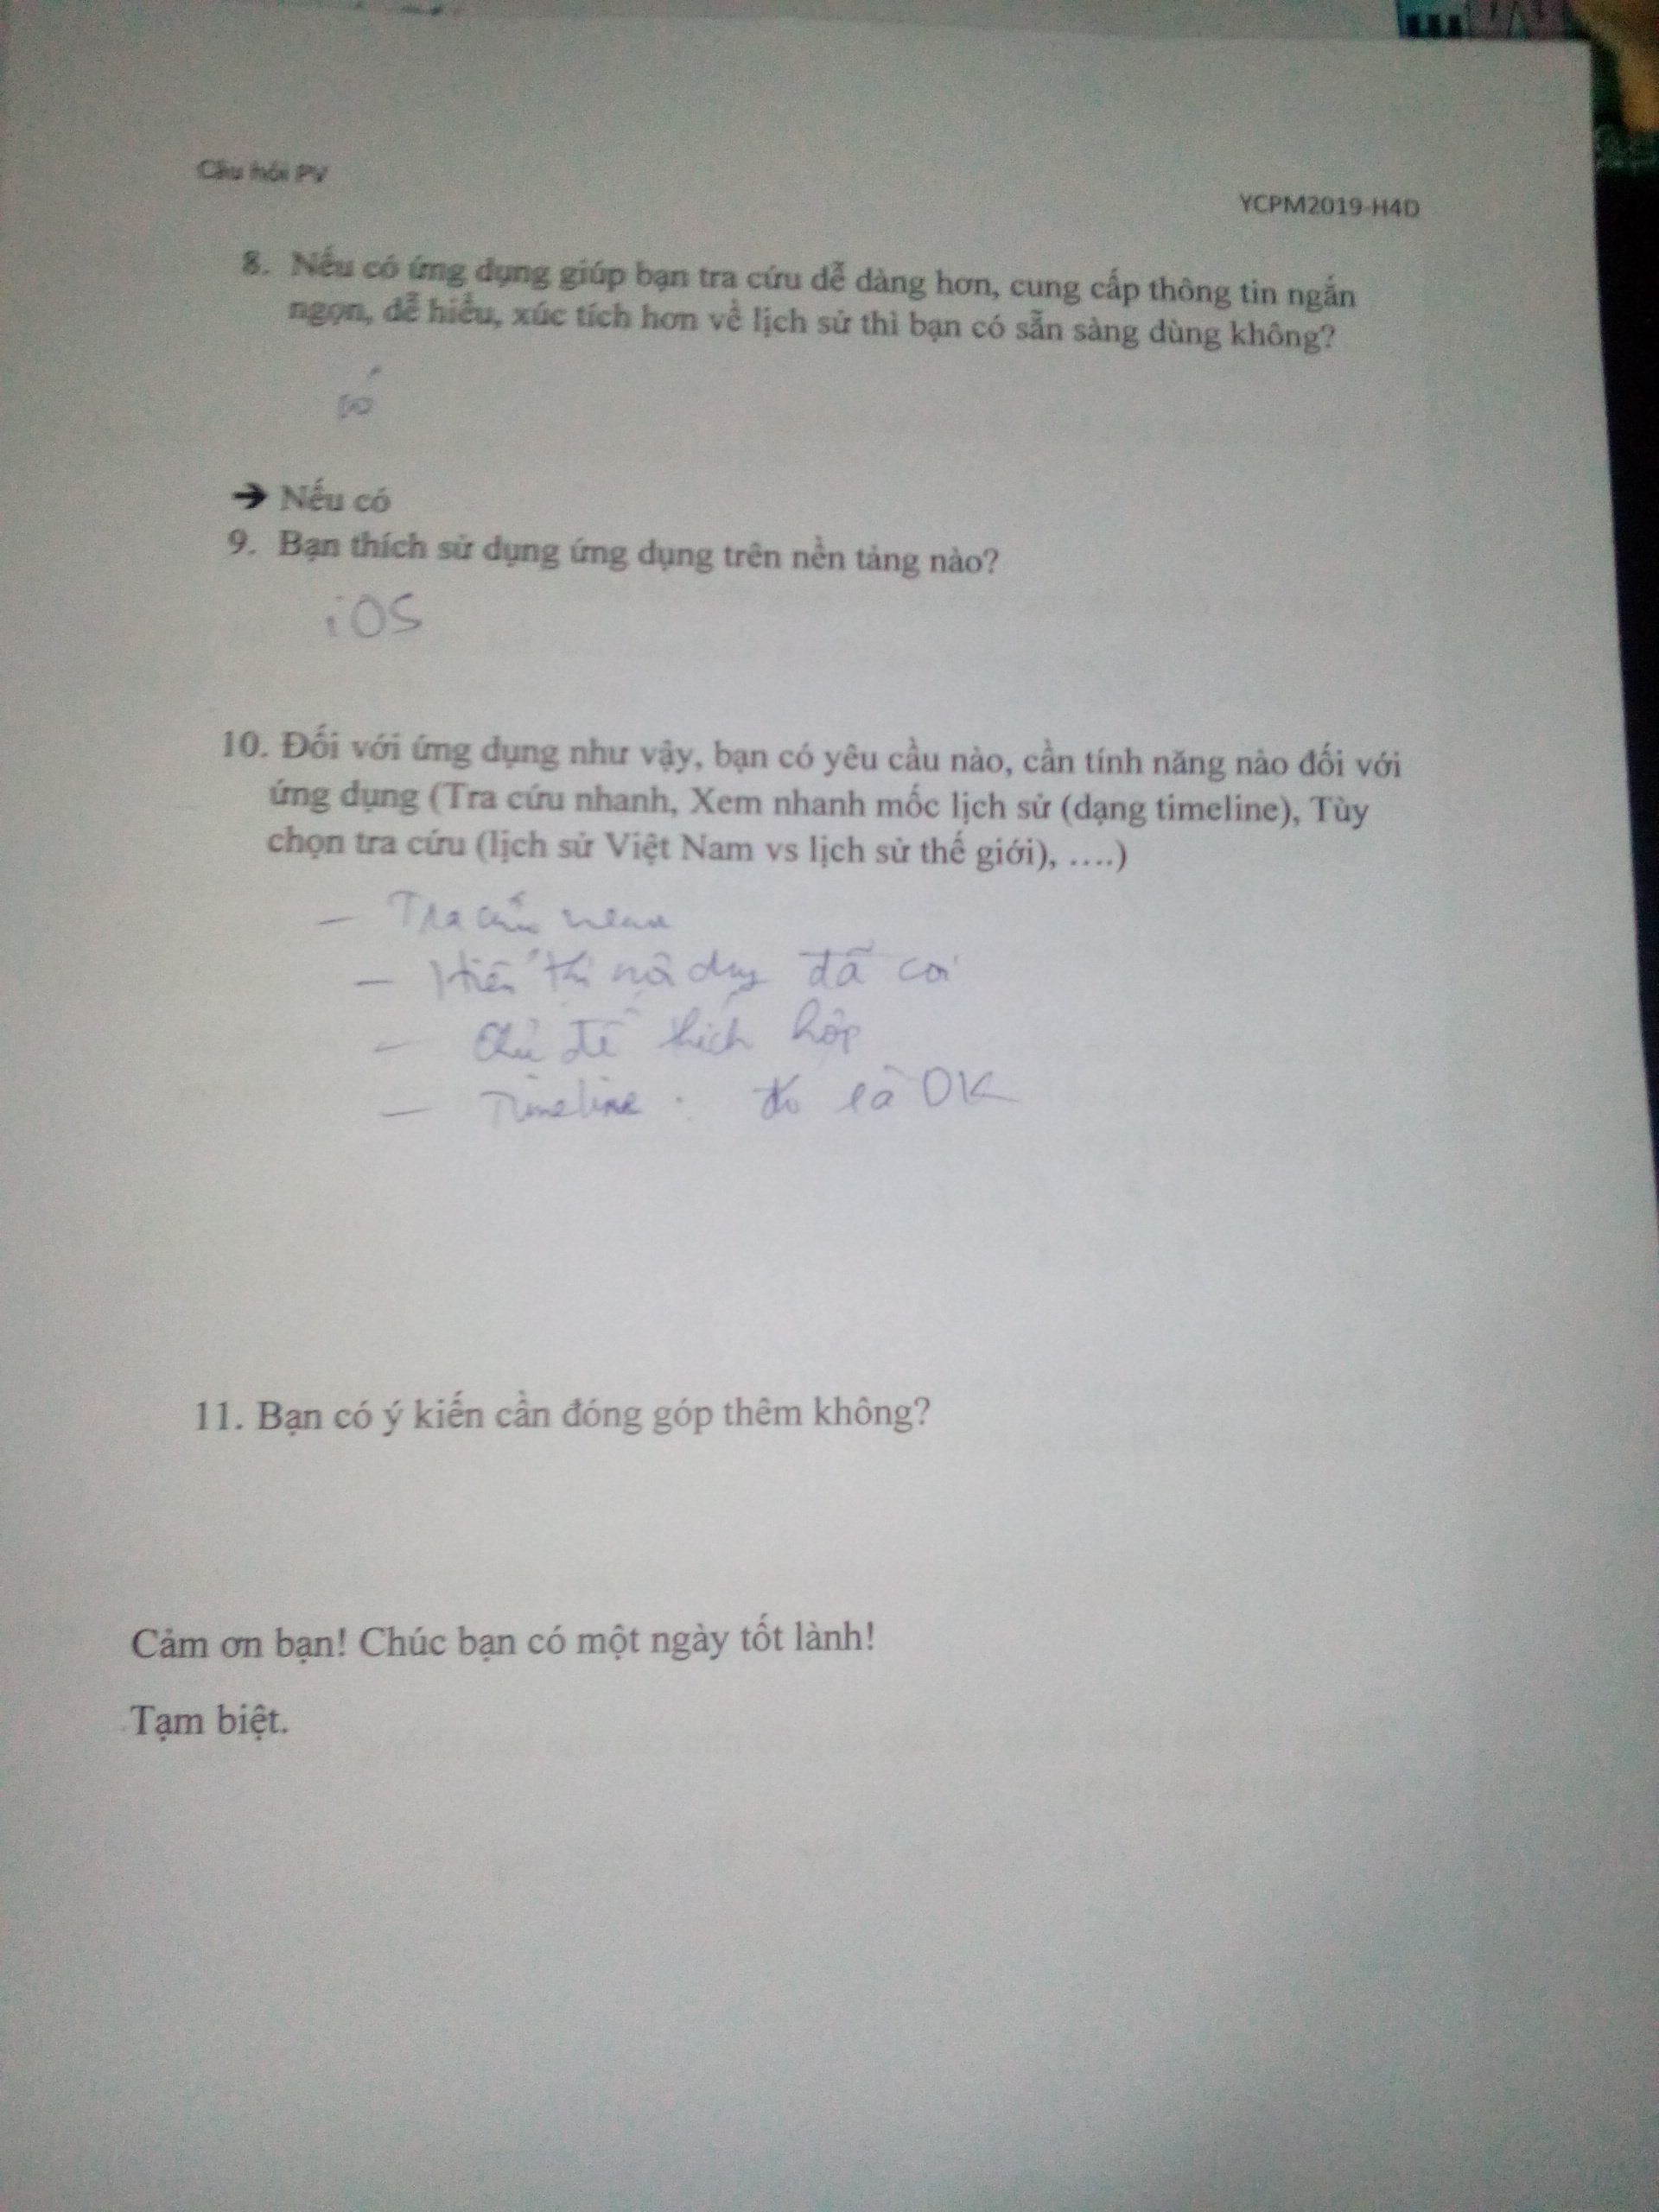 Câu hỏi PV
YCPM2019-H4D
8. Nếu có ứng dụng giúp bạn tra cứu dễ dàng hơn, cung cấp thông tin ngắn
ngọn, dễ hiểu, xúc tích hơn về lịch sử thì bạn có sẵn sàng dùng không?
có
➔ Nếu có
9. Bạn thích sử dụng ứng dụng trên nền tảng nào?
iOS
10. Đối với ứng dụng như vậy, bạn có yêu cầu nào, cần tính năng nào đối với
ứng dụng (Tra cứu nhanh, Xem nhanh mốc lịch sử (dạng timeline), Tùy
chọn tra cứu (lịch sử Việt Nam vs lịch sử thế giới), ....)
- Tra cứu
- Hiển thị nội dung đã coi
- Chủ đề thích hợp
- Timeline : là OK
11. Bạn có ý kiến cần đóng góp thêm không?
Cảm ơn bạn! Chúc bạn có một ngày tốt lành!
Tạm biệt.